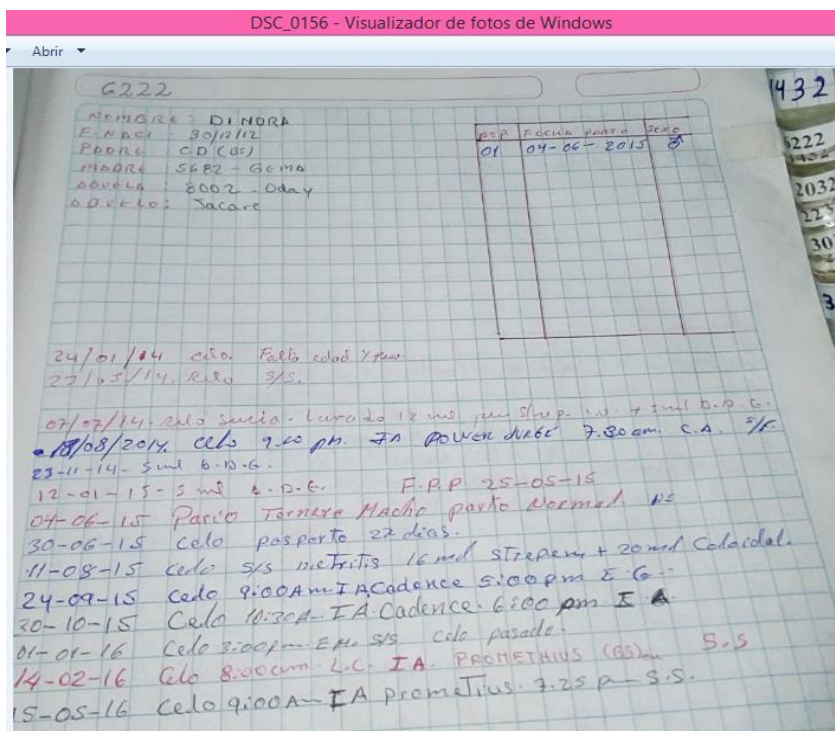 DSC_0156 - Visualizador de fotos de Windows
Abrir
6222
Nombre: DINORA
F. Naci 30/12/12
Padre CD (BS)
Madre 5682 - Gema
Abuela 8002 - Oday
Abuelo: Jacare
Fecha Parto Sexo
01 04-06-2015 ♂
1432
6222
1432
2032
223
30
3
24/01/14 celo. Falta edad y
/14. celo S/S.
07/07/14. celo sucio. Lavado
18/08/2014 celo pm. IA Power 7.30 am. C.A. S/F
23-11-14 - 5 ml B.D.G.
12-01-15 - 5 ml F.P.P 25-05-15
04-06-15 Parto Ternero Macho parto Normal.
30-06-15 Celo posparto 22 dias.
11-08-15 Celo S/S metritis 16 ml strepen + 20 ml Coloidal.
24-09-15 Celo 9:00 Am IA Cadence 5:00 pm E.G.
20-10-15 Celo 10:30A IA Cadence. 6:00 pm
01-01-16 Celo 3:00 pm S/S celo pasado.
14-02-16 Celo 8:00am L.C. IA. PROMETHIUS (BS) S.S
15-05-16 Celo 9:00 A IA prometius. 7.25 p S.S.